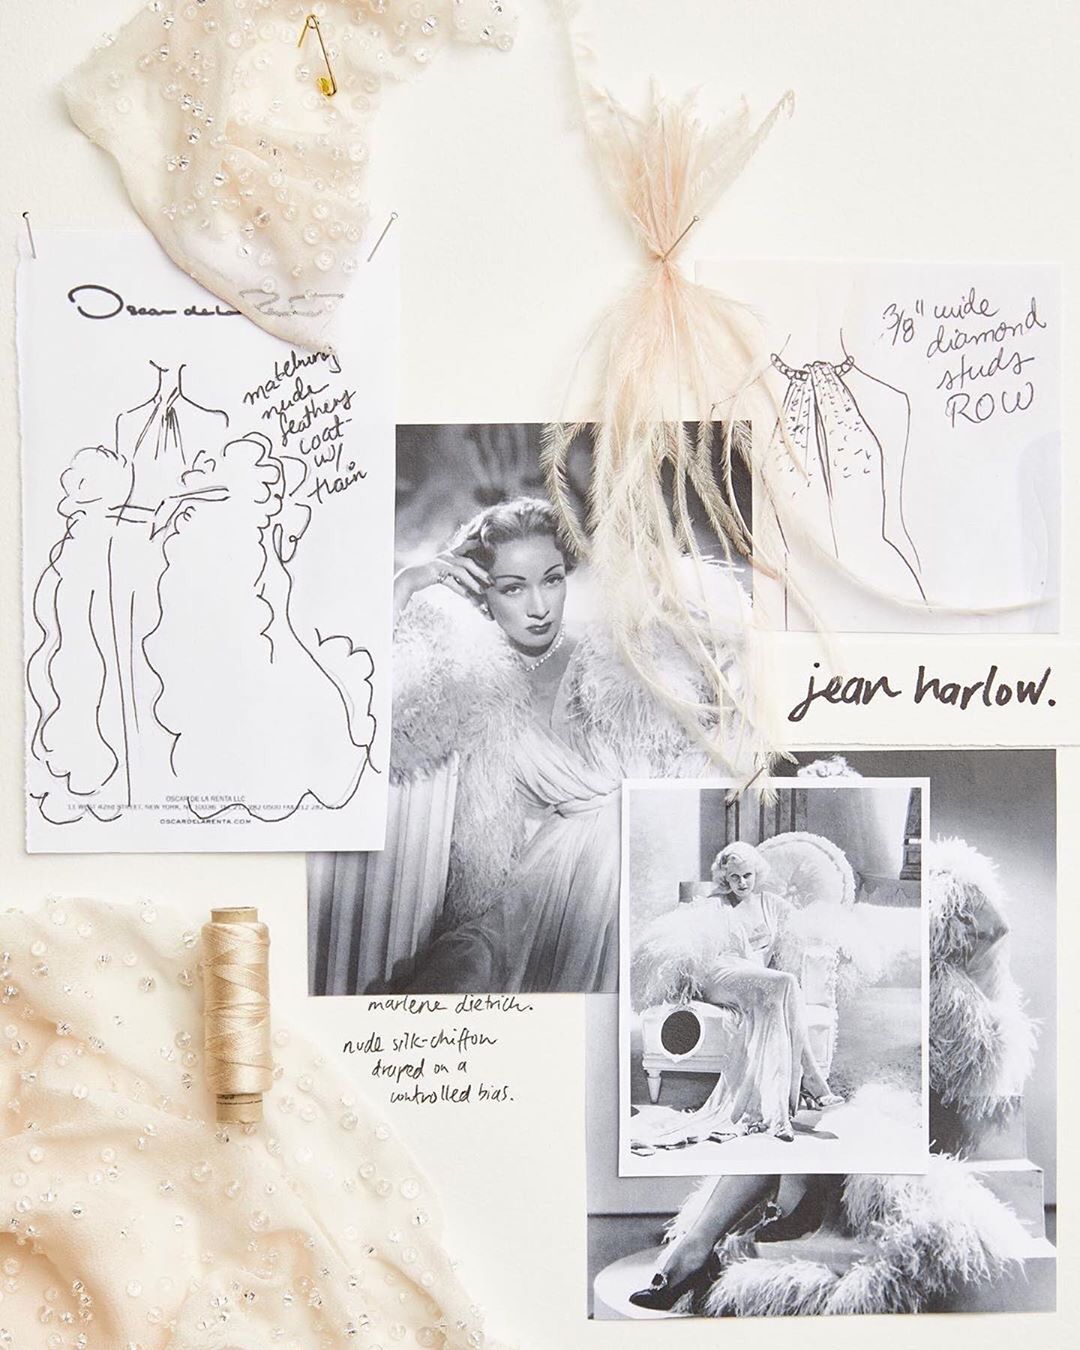 Oscar de la Renta
matching
nude
feathery
coat-
w/
train
OSCAR DE LA RENTA LLC
11 WEST 42ND STREET, NEW YORK, NY 10036 TEL 212 282 0500 FAX 212 282
OSCARDELARENTA.COM
3/8" wide
diamond
studs
ROW
jean harlow.
marlene dietrich.
nude silk-chiffon
draped on a
controlled bias.